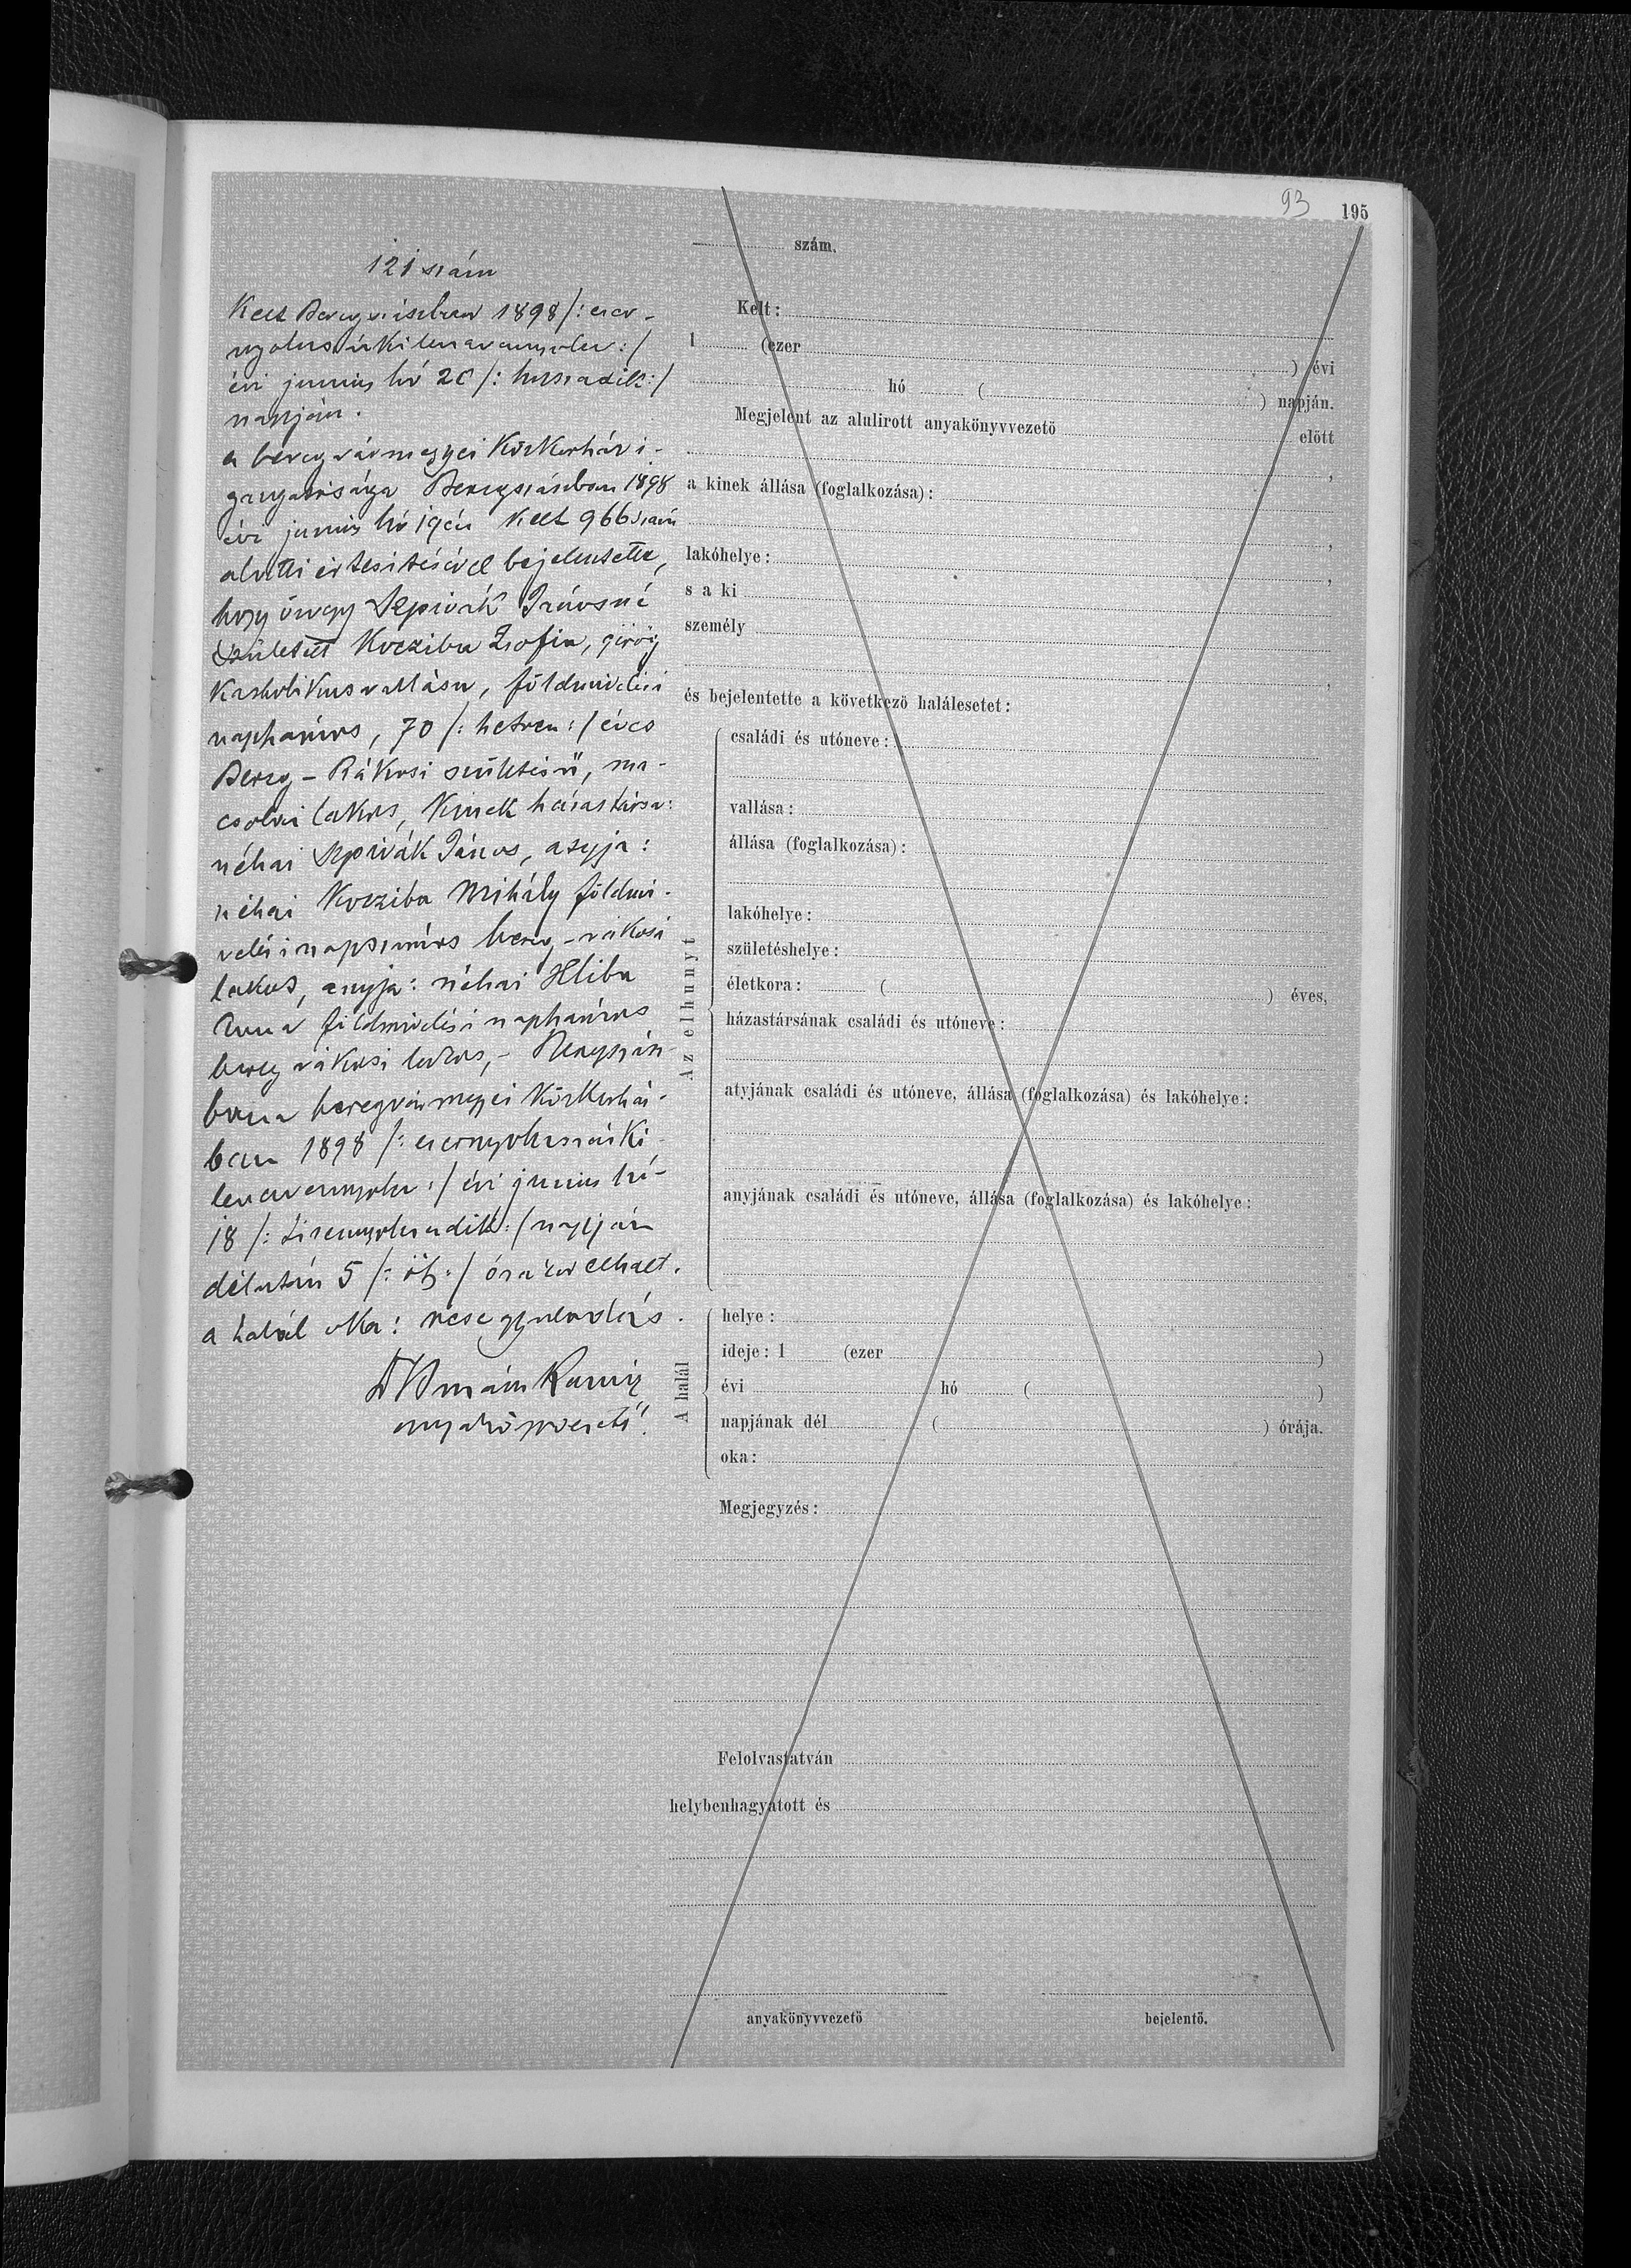 93
195
121 szám
Kelt Beregszászban 1898 /: ezer-
nyolcszázkilencvennyolcz :/
évi junius hó 20 /: huszadik :/
napján.
a beregvármegyei Közkórház i-
gazgatósága Beregszászban 1898
évi junius hó 19én kelt 966 szám
alatti értesitésével bejelentette,
hogy özvegy Szpivák Jánosné
született Kocziba Zsofia, görög
katholikus vallásu, földmivelési
napszámos, 70 /: hetven :/ éves
Bereg-Rákosi születésü, ma-
csolai lakos, kinek házastársa:
néhai Szpivák János, atyja:
néhai Kocziba Mihály földmi-
velési napszámos bereg-rákosi
lakos, anyja: néhai Hliba
Anna földmivelési napszámos
bereg rákosi lakos, - Beregszász-
ban a beregvármegyei Közkórház-
ban 1898 /: ezernyolcszázki-
lencvennyolcz :/ évi junius hó
18 /: tizennyolczadik :/ napján
délután 5 /: öt :/ órakor elhalt.
a halál oka: vesegyuladás.
anyakönyvvezető
szám.
Kelt:
1 (ezer ) évi
hó ( ) napján.
Megjelent az alulirott anyakönyvvezető előtt
,
a kinek állása (foglalkozása):
,
lakóhelye: ,
s a ki
személy
,
és bejelentette a következő halálesetet:
Az elhunyt
családi és utóneve:
vallása:
állása (foglalkozása):
lakóhelye:
születéshelye:
életkora: ( ) éves,
házastársának családi és utóneve:
atyjának családi és utóneve, állása (foglalkozása) és lakóhelye:
anyjának családi és utóneve, állása (foglalkozása) és lakóhelye:
A halál
helye:
ideje: 1 (ezer )
évi hó ( )
napjának dél ( ) órája.
oka:
Megjegyzés:
Felolvastatván
helybenhagyatott és
anyakönyvvezető
bejelentő.